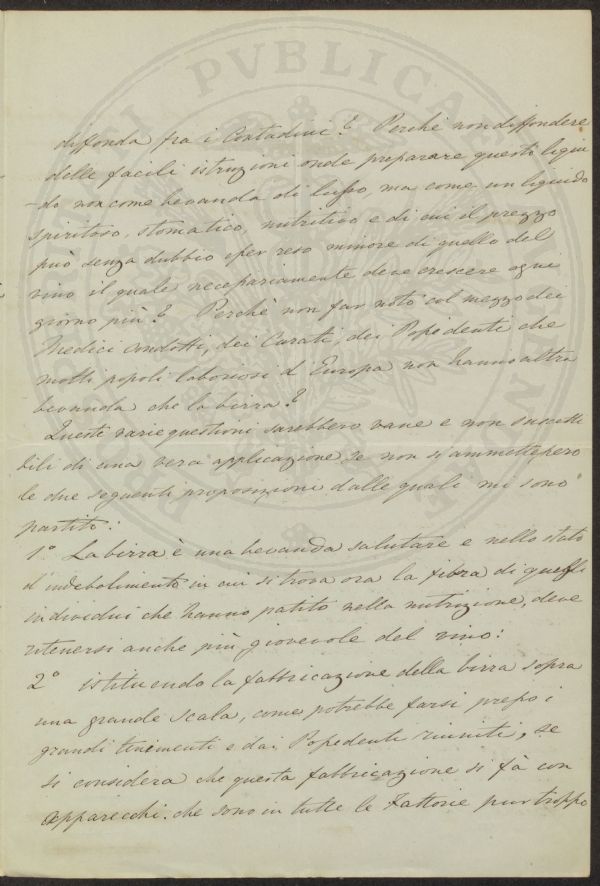 diffonda fra i Contadini? Perchè non diffondere
delle facili istruzioni onde preparare questo liqui
-do non come bevanda di lusso, ma come un liquido
spiritoso, stomatico, nutritivo e di cui il prezzo
può senza dubbio esser reso minore di quello del
vino il quale necessariamente deve crescere ogni
giorno più? Perchè non far noto col mezzo dei
Medici condotti, dei Curati, dei Possidenti che
molti popoli laboriosi d'Europa non hanno altra
bevanda che la birra?
Queste varie questioni sarebbero vane e non suscetti
bili di una vera applicazione se non si ammettessero
le due seguenti proposizioni dalle quali mi sono
partito:
1° La birra è una bevanda salutare e nello stato
d'indebolimento in cui si trova ora la fibra di quelli
individui che hanno patito nella nutrizione, deve
ritenersi anche più giovevole del vino:
2° istituendo la fabbricazione della birra sopra
una grande scala, come potrebbe farsi presso i
grandi tenimenti e dai Possidenti riuniti, se
si considera che questa fabbricazione si fà con
apparecchi che sono in tutte le Fattorie pur troppo
PUBLICA